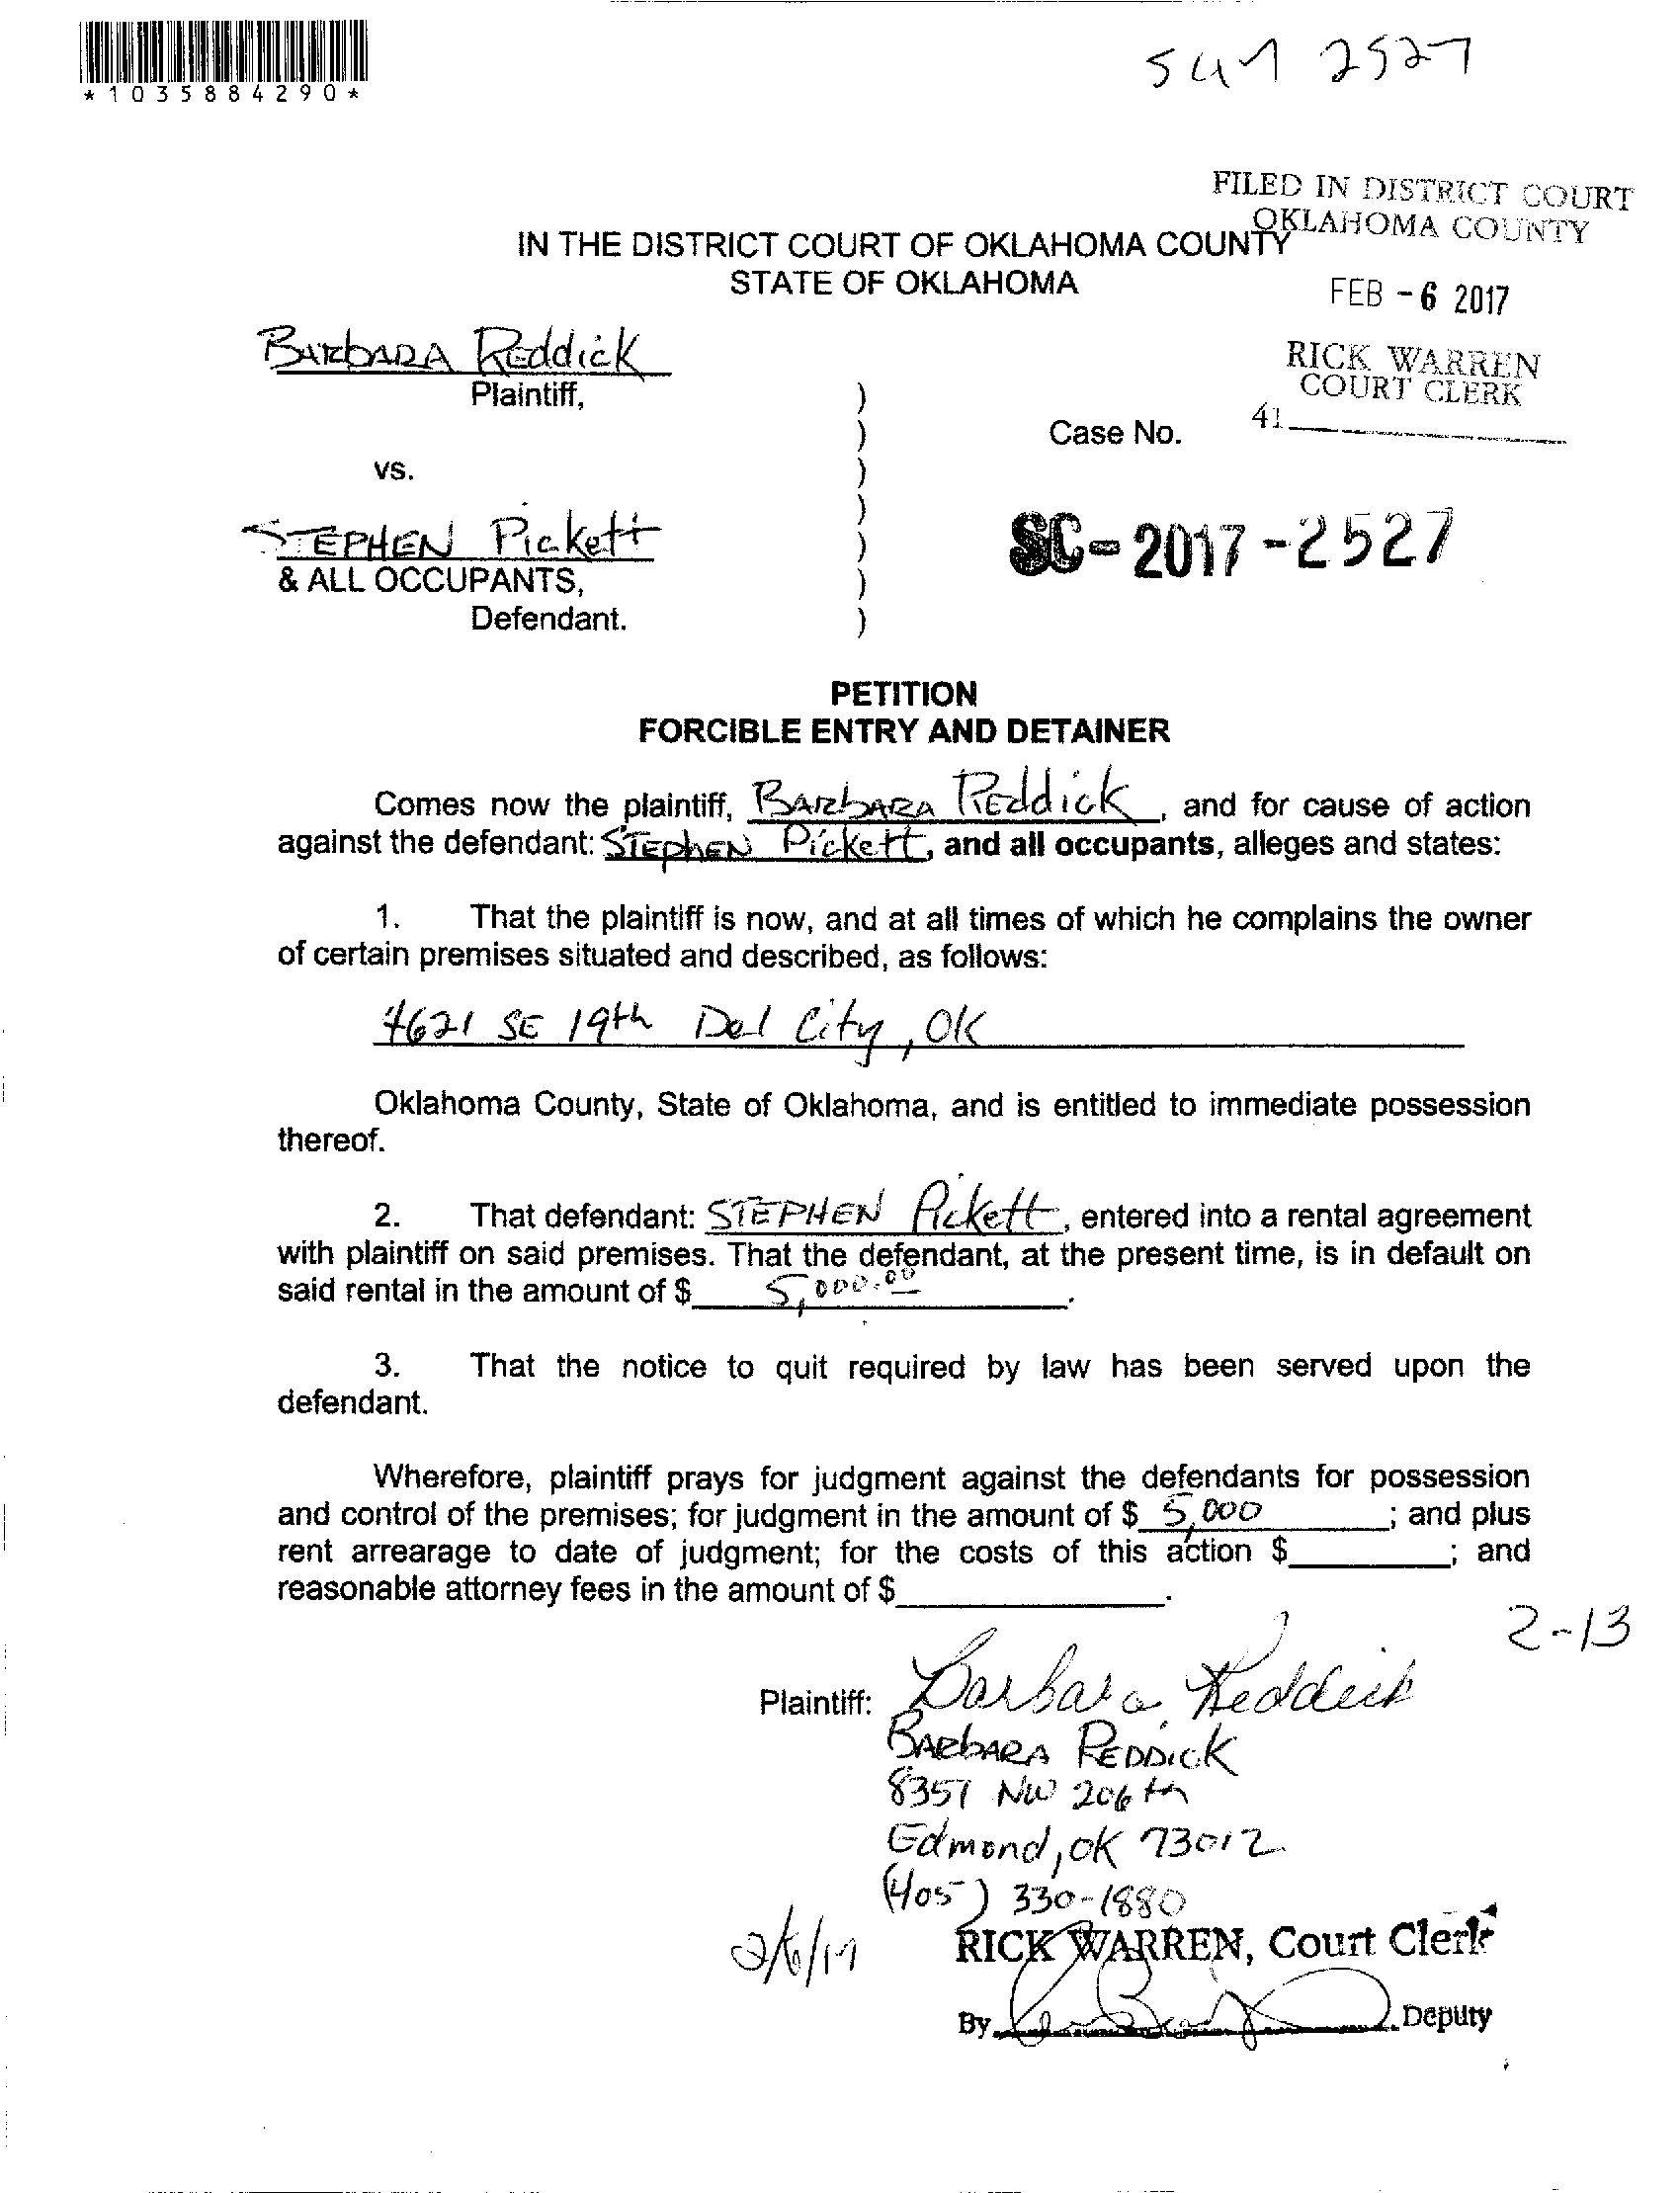 *1035884290*
2527
FILED IN DISTRICT COURT
OKLAHOMA COUNTY
IN THE DISTRICT COURT OF OKLAHOMA COUNTY
STATE OF OKLAHOMA
FEB -6 2017
RICK WARREN
COURT CLERK
41
Barbara Reddick
Plaintiff,
)
)
Case No.
vs.
)
)
STEPHEN Pickett
)
SC-2017-2527
& ALL OCCUPANTS,
)
Defendant.
)
PETITION
FORCIBLE ENTRY AND DETAINER
Comes now the plaintiff, Barbara Reddick, and for cause of action
against the defendant: Stephen Pickett, and all occupants, alleges and states:
1. That the plaintiff is now, and at all times of which he complains the owner
of certain premises situated and described, as follows:
4621 SE 19th Del City, OK
Oklahoma County, State of Oklahoma, and is entitled to immediate possession
thereof.
2. That defendant: STEPHEN Pickett, entered into a rental agreement
with plaintiff on said premises. That the defendant, at the present time, is in default on
said rental in the amount of $ 5,000.00.
3. That the notice to quit required by law has been served upon the
defendant.
Wherefore, plaintiff prays for judgment against the defendants for possession
and control of the premises; for judgment in the amount of $ 5,000 ; and plus
rent arrearage to date of judgment; for the costs of this action $ ; and
reasonable attorney fees in the amount of $ .
2-13
Plaintiff: Barbara Reddick
Barbara Reddick
8357 NW 206th
Edmond, OK 73012
(405) 330-1880
2/6/17
RICK WARREN, Court Clerk
By Deputy